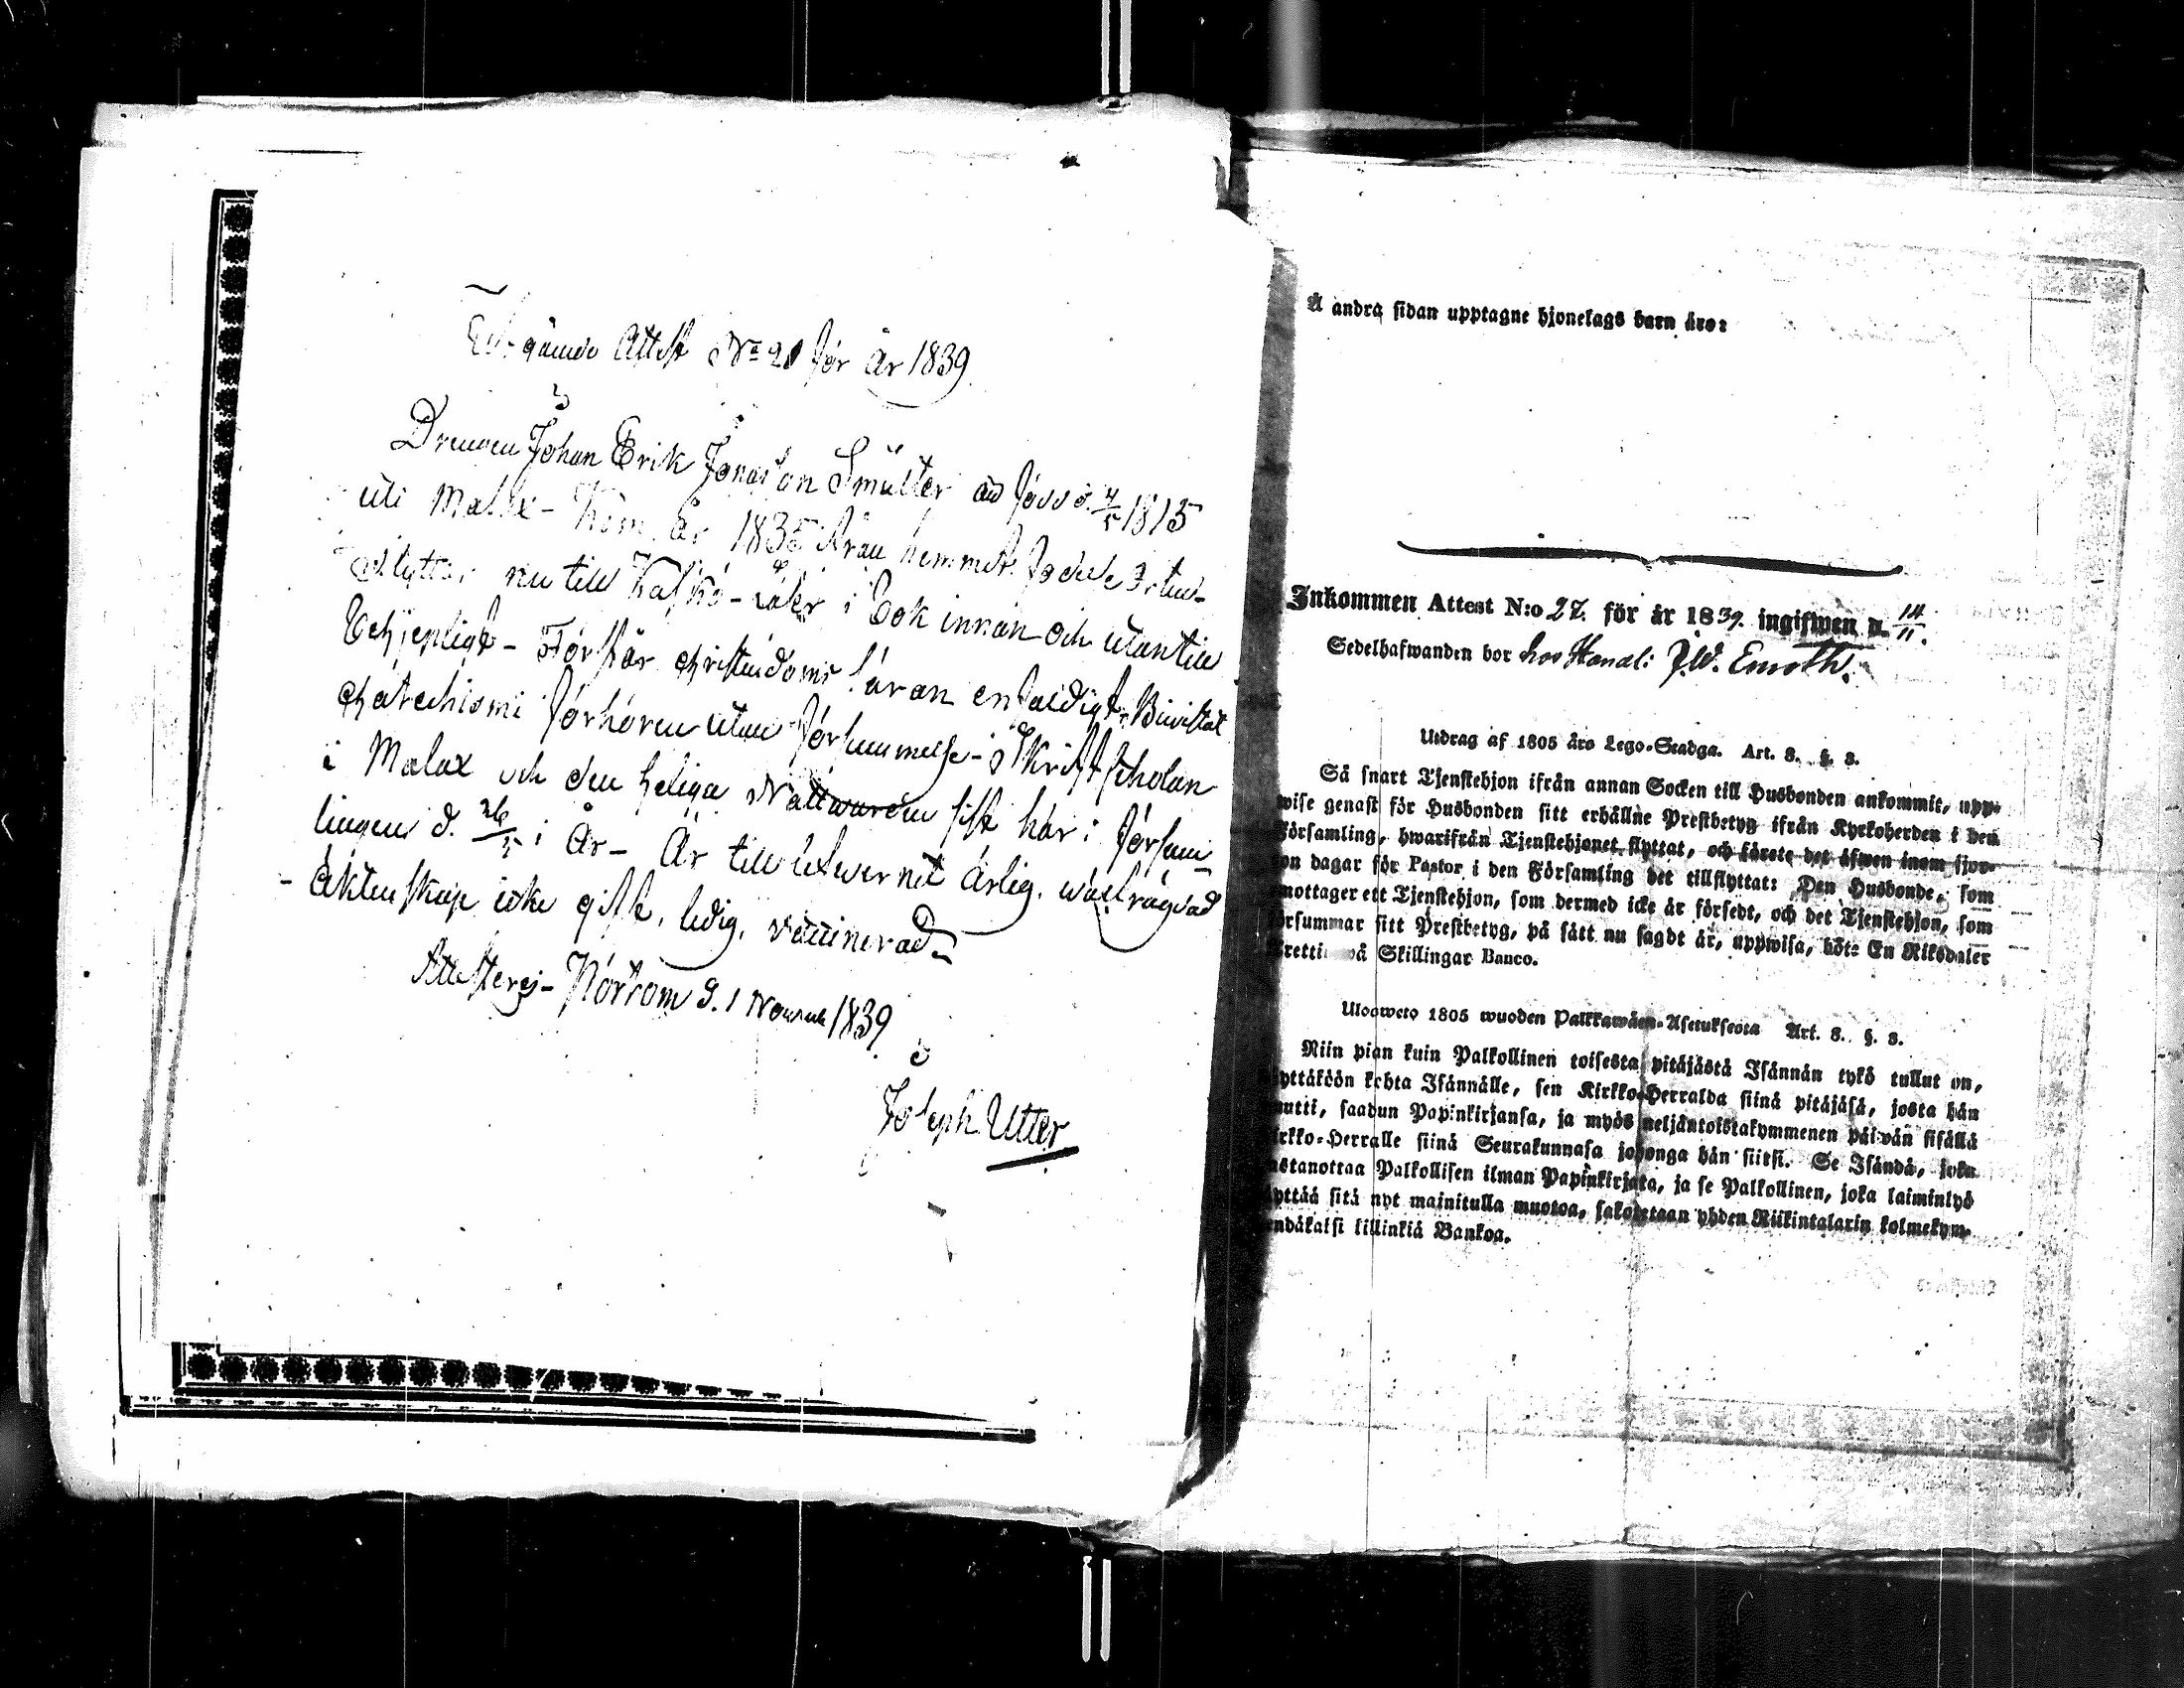 Utgående Attest No 20 för År 1839
Drengen Johan Erik Jonasson Smulter född d. 4/5 1815
uti Malax - Kom År 1835 från hemmet
flyttar nu till Kaskö - Läser i Bok innan och utantill
behjenligt - Förstår Christendoms läran enfaldigt - Bivistat
Chatechismi förhören utan försummelse - Skriftscholan
i Malax och den heliga Nattwarden sist här i försam-
lingen d. 26/5 i År - Är till lefwernet ärlig, wälfrägdad
- äktenskap icke gift, ledig, vaccinerad.
Attesterej - Nörtom d. 1 Novemb 1839
Joseph Utter
Å andra sidan upptagne hjonelags barn äro:
Inkommen Attest N:o 27. för år 1839. ingifwen d. 14/11.
Sedelhafwanden bor hos Handl: J.W. Emoth.
Utdrag af 1805 års Lego-Stadga. Art. 8. §. 8.
Så snart Tjenstehjon ifrån annan Socken till Husbonden ankommit, upp-
wise genast för Husbonden sitt erhållne Prestbetyg ifrån Kyrkoherden i den
Församling, hwarifrån Tjenstehjonet flyttat, och förete det äfwen inom fjor-
ton dagar för Pastor i den Församling det tillflyttat: Den Husbonde, som
mottager ett Tjenstehjon, som dermed icke är försedt, och det Tjenstehjon, som
försummar sitt Prestbetyg, på sätt nu sagdt är, uppwisa, böte En Riksdaler
Trettitwå Skillingar Banco.
Ulosweto 1805 wuoden Palkkawäen-Asetuksesta Art. 8. §. 8.
Niin pian kuin Palkollinen toisesta pitäjästä Isännän tykö tullut on,
näyttäköön kohta Isännälle, sen Kirkko-Herralda siinä pitäjäsä, josta hän
muutti, saadun Papinkirjansa, ja myös neljäntoistakymmenen päiwän sisällä
Kirkko-Herralle siinä Seurakunnasa johonga hän siitsi. Se Isändä, joka
wastanottaa Palkollisen ilman Papinkirjata, ja se Palkollinen, joka laiminlyö
näyttää sitä nyt mainitulla muotoa, sakotetaan yhden Riikintalarin kolmekym-
mendäkaksi killinkiä Bankoa.